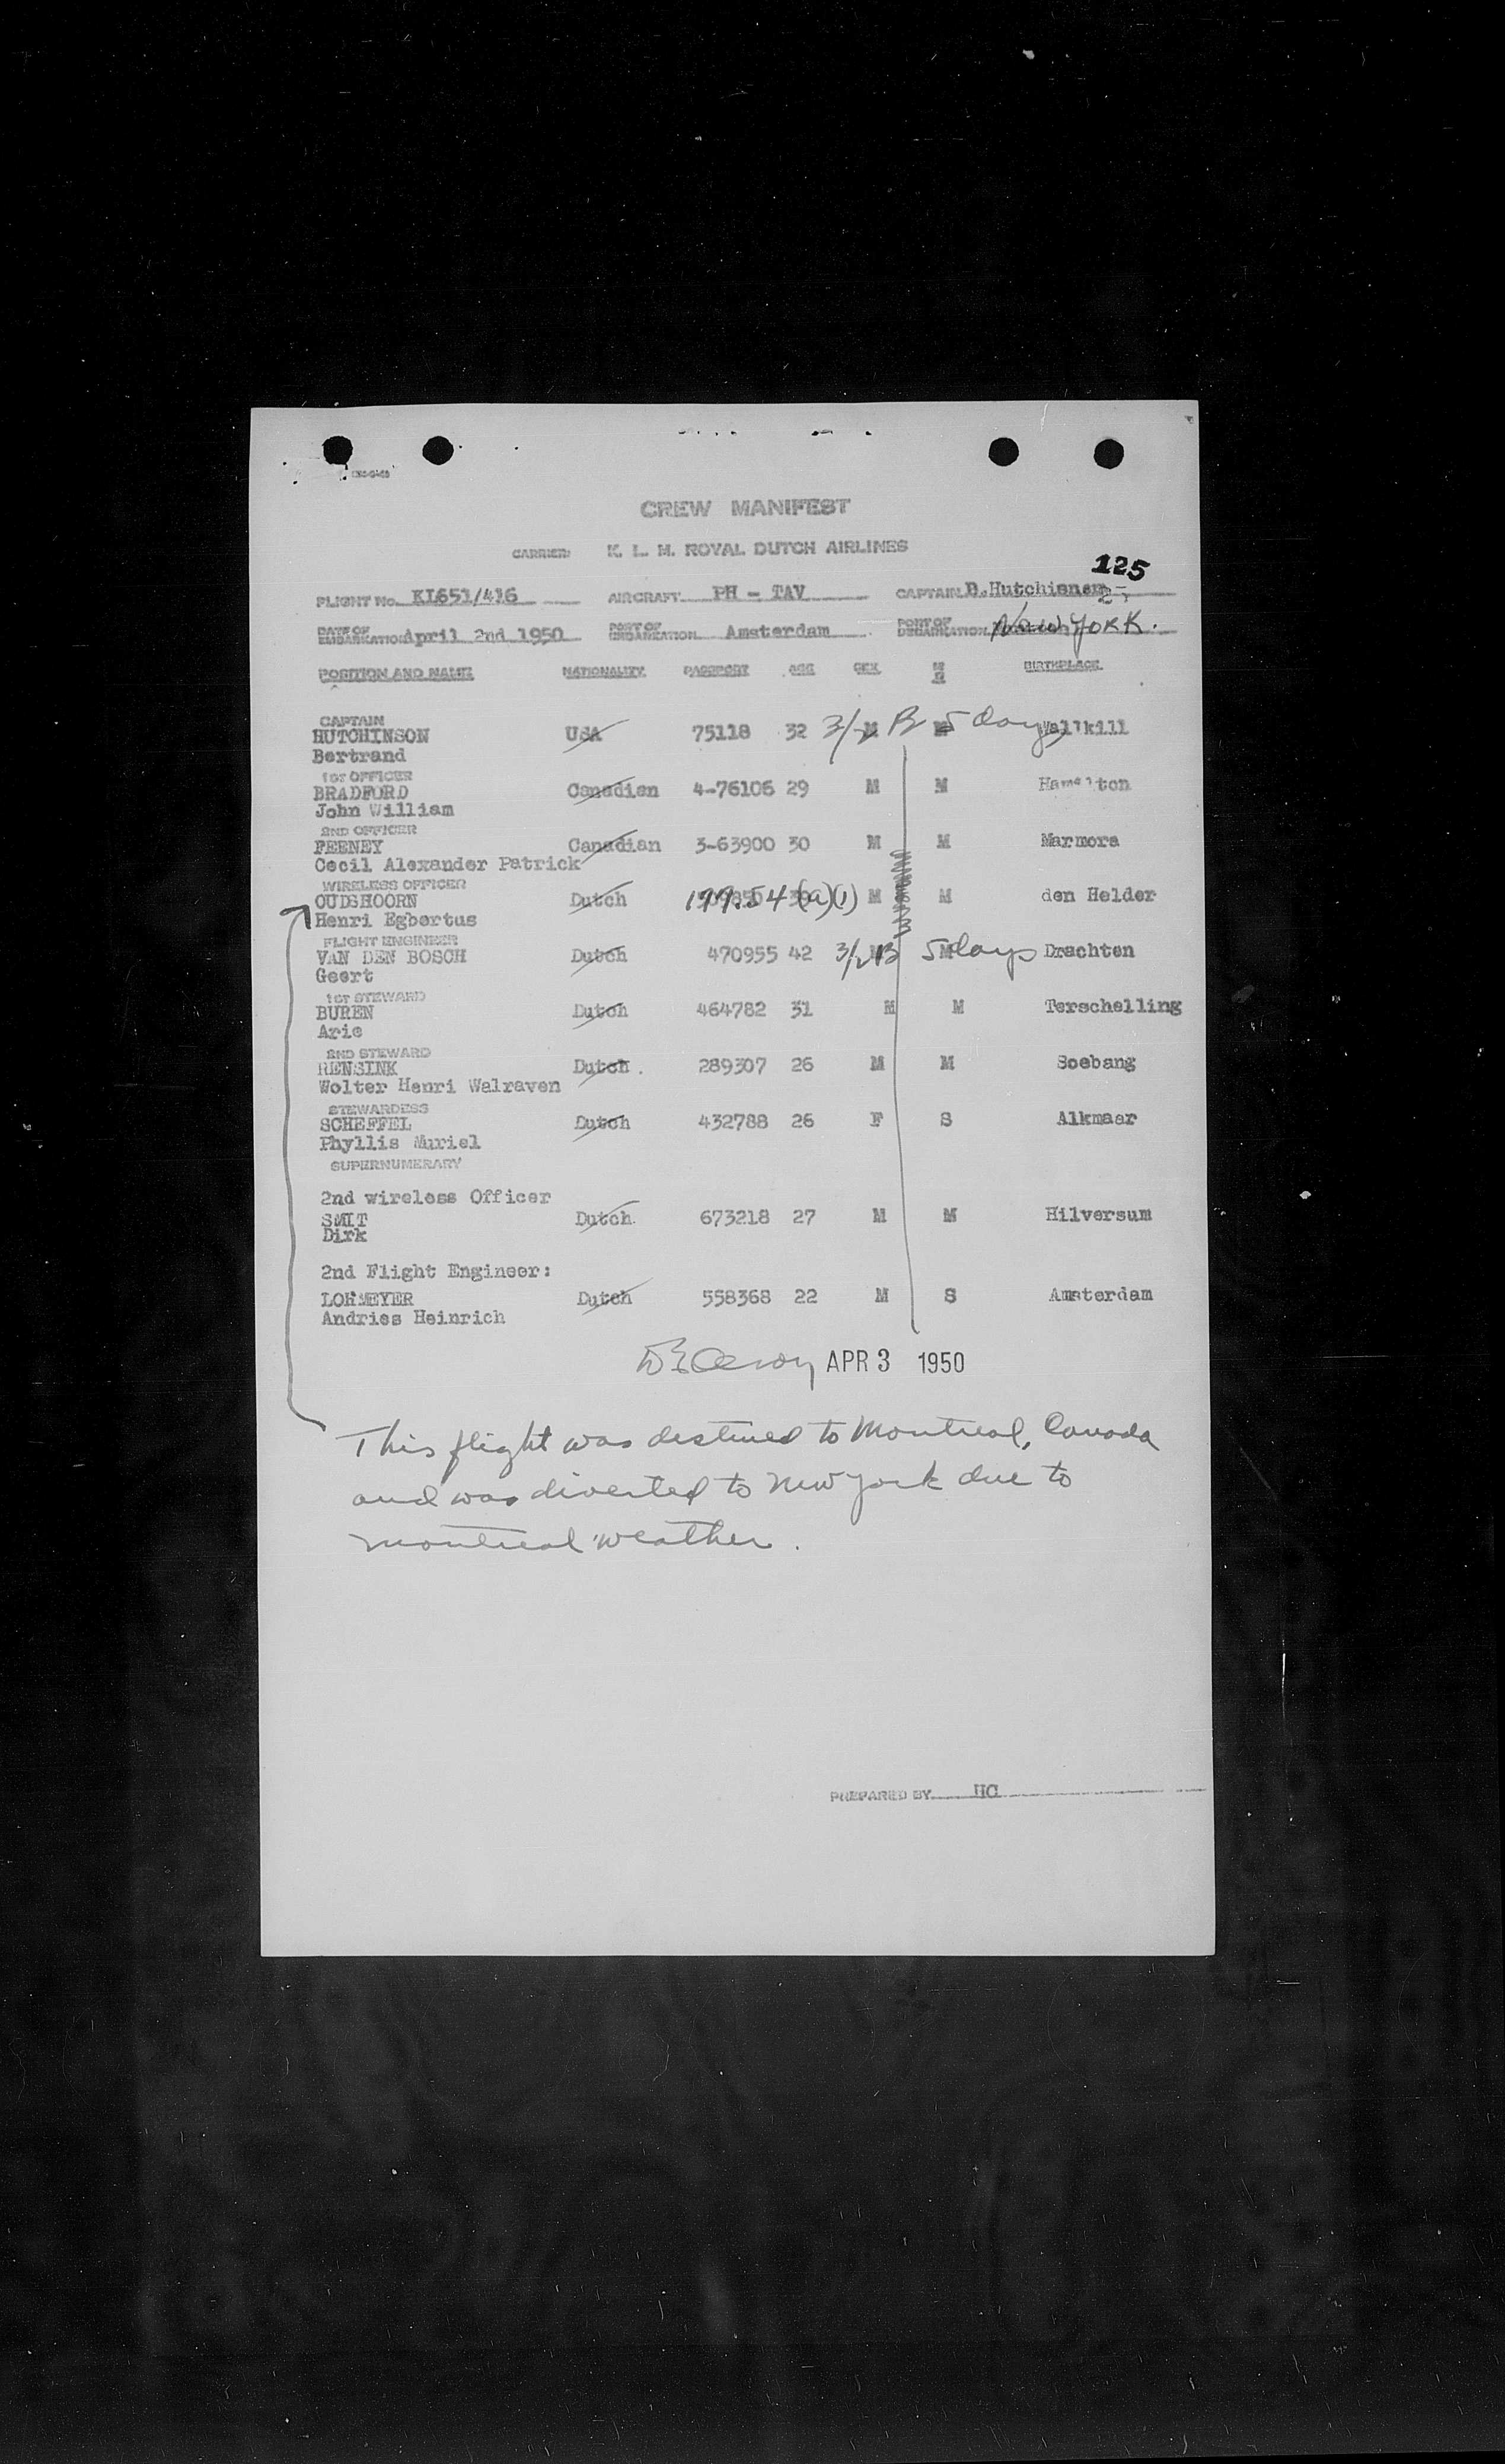 CREW MANIFEST
CARRIER: K. L. M. ROYAL DUTCH AIRLINES
125
FLIGHT No. KL651/416 AIRCRAFT PH - TAV CAPTAIN
DATE OF EMBARKATION April 2nd 1950 PORT OF EMBARKATION Amsterdam PORT OF DEBARKATION New York.
POSITION AND NAME NATIONALITY PASSPORT AGE SEX M S BIRTHPLACE
CAPTAIN
HUTCHINSON USA 75118 32 3/2 B 5 days Wallkill
Bertrand
1ST OFFICER
BRADFORD Canadian 4-76106 29 M M Hamilton
John William
2ND OFFICER
FEENEY Canadian 3-63900 30 M M Marmora
Cecil Alexander Patrick
WIRELESS OFFICER
OUDSHOORN Dutch 177.54 (a)(1) M M den Helder
Henri Egbertus
FLIGHT ENGINEER
VAN DEN BOSCH Dutch 470955 42 3/2 B 5 days Drachten
Geert
1ST STEWARD
BUREN Dutch 464782 31 M M Terschelling
Arie
2ND STEWARD
RENSINK Dutch. 289307 26 M M Soebang
Wolter Henri Walraven
STEWARDESS
SCHEFFEL Dutch 432788 26 F S Alkmaar
Phyllis Muriel
SUPERNUMERARY
2nd wireless Officer
SMIT Dutch. 673218 27 M M Hilversum
Dirk
2nd Flight Engineer:
LOHMEYER Dutch 558368 22 M S Amsterdam
Andries Heinrich
APR 3 1950
This flight was destined to Montreal, Canada
and was diverted to New York due to
Montreal weather.
PREPARED BY HC